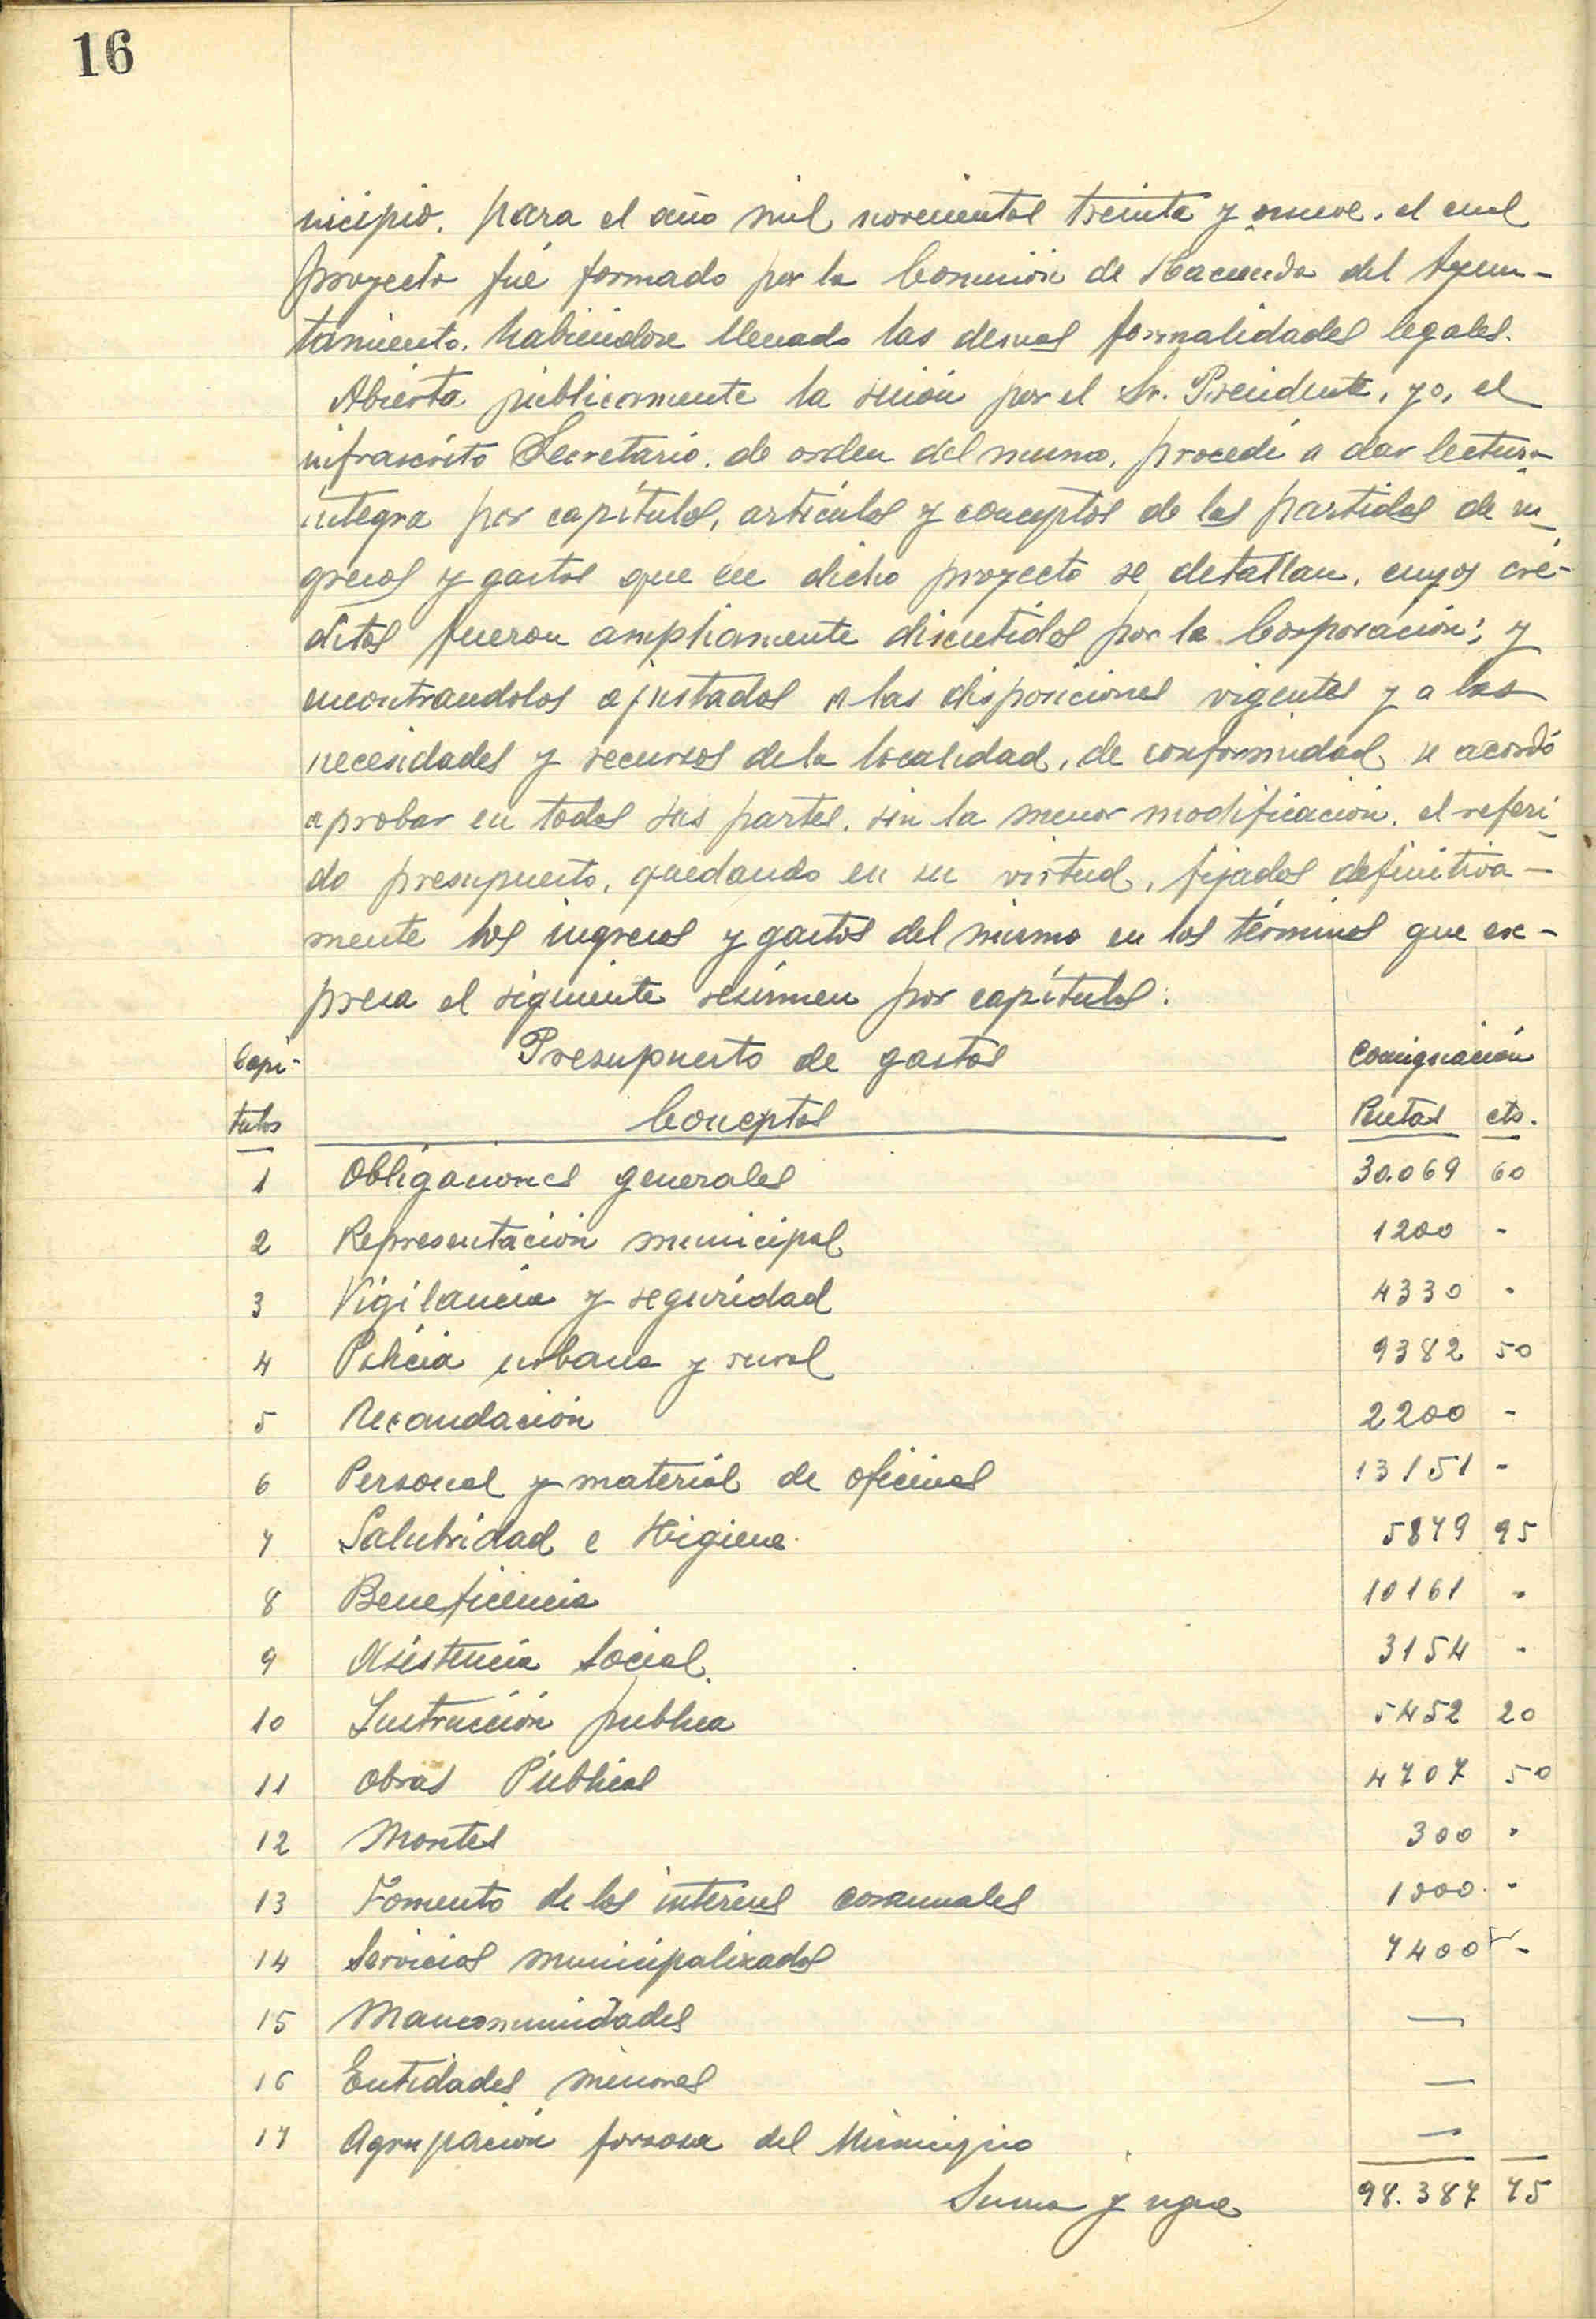 16
nicipio, para el año mil novecientos treinta y nueve, el cual
proyecto fué formado por la Comisión de Hacienda del Ayun-
tamiento, habiendose llenado las demas formalidades legales.
Abierta públicamente la sesión por el Sr. Presidente, yo, el
infrascrito Secretario, de orden del mismo, procedí a dar lectura
integra por capítulos, artículos y conceptos de las partidas de in-
gresos y gastos que en dicho proyecto se detallan, cuyos cré-
ditos fueron ampliamente discutidos por la Corporación; y
encontrandolos ajustados a las disposiciones vigentes y a las
necesidades y recursos de la localidad, de conformidad se acordó
aprobar en todas sus partes, sin la menor modificación, el referi-
do presupuesto, quedando en su virtud, fijados definitiva-
mente los ingresos y gastos del mismo en los términos que ex-
presa el siguiente resúmen por capítulos:
Capi- Presupuesto de gastos Consignación
tulos Conceptos Pesetas cts.
1 Obligaciones generales 30.069 60
2 Representación municipal 1200 -
3 Vigilancia y seguridad 4330 -
4 Policia urbana y rural 9382 50
5 Recaudación 2200 -
6 Personal y material de oficinas 13151 -
7 Salubridad e Higiene 5879 95
8 Beneficencia 10161 -
9 Asistencia Social. 3154 -
10 Instrucción publica 5452 20
11 Obras Públicas 4707 50
12 Montes 300 -
13 Fomento de los intereses comunales 1000 -
14 Servicios municipalizados 7400 -
15 Mancomunidades —
16 Entidades menores —
17 Agrupación forzosa del Municipio —
Suma y sigue 98.387 75